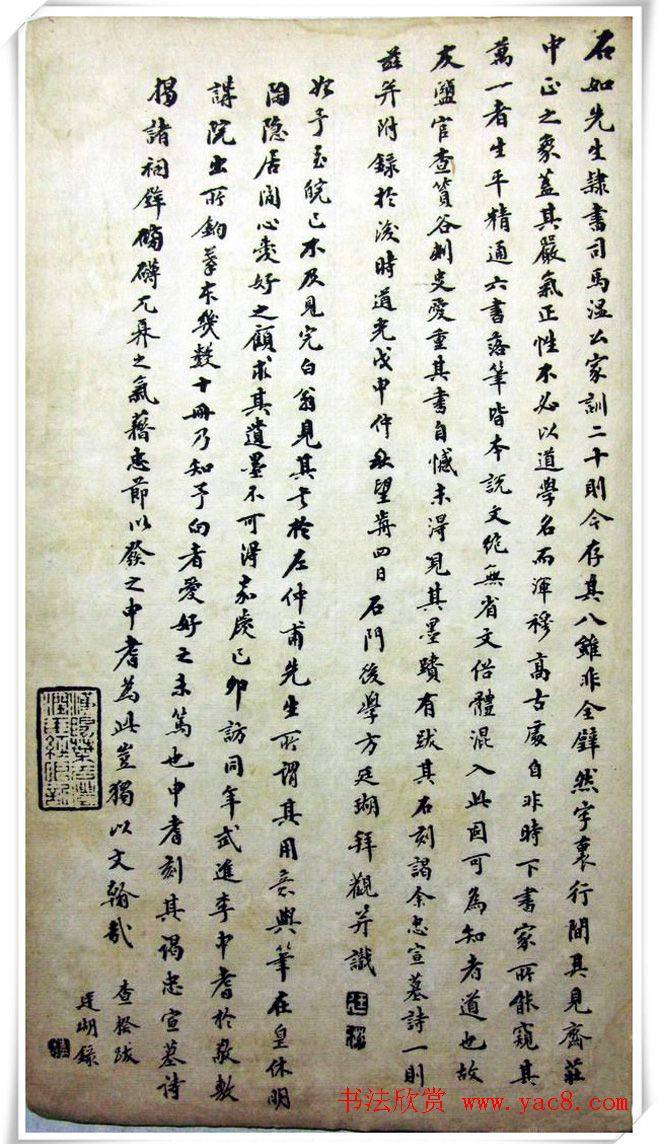 石如先生隸書司馬溫公家訓二十則今存其八雖非全璧然字裏行間具見齋莊
中正之象蓋其嚴氣正性不必以道學名而渾穆高古處自非時下書家所能窺其
萬一者生平精通六書落筆皆本說文絕無省文俗體混入此固可為知者道也故
友鹽官查篔谷刺史愛重其書自憾未得見其墨蹟有跋其石刻謁余忠宣墓詩一則
茲并附錄於後時道光戊申仲秋望前四日石門後學方廷瑚拜觀并識
始予至皖已不及見完白翁見其書於左仲甫先生所謂其用意與筆在皇休明
陶隱居間心愛好之顧求其遺墨不可得嘉慶己卯訪同年武進李申耆於敬敷
講院出所鉤摹本幾數十冊乃知予向者愛好之未篤也申耆刻其謁忠宣墓詩
揭諸祠鋒礌磚兀奡之氣藉忠節以發之申耆為此豈獨以文翰哉
查跋
廷瑚錄
书法欣赏 www.yac8.com